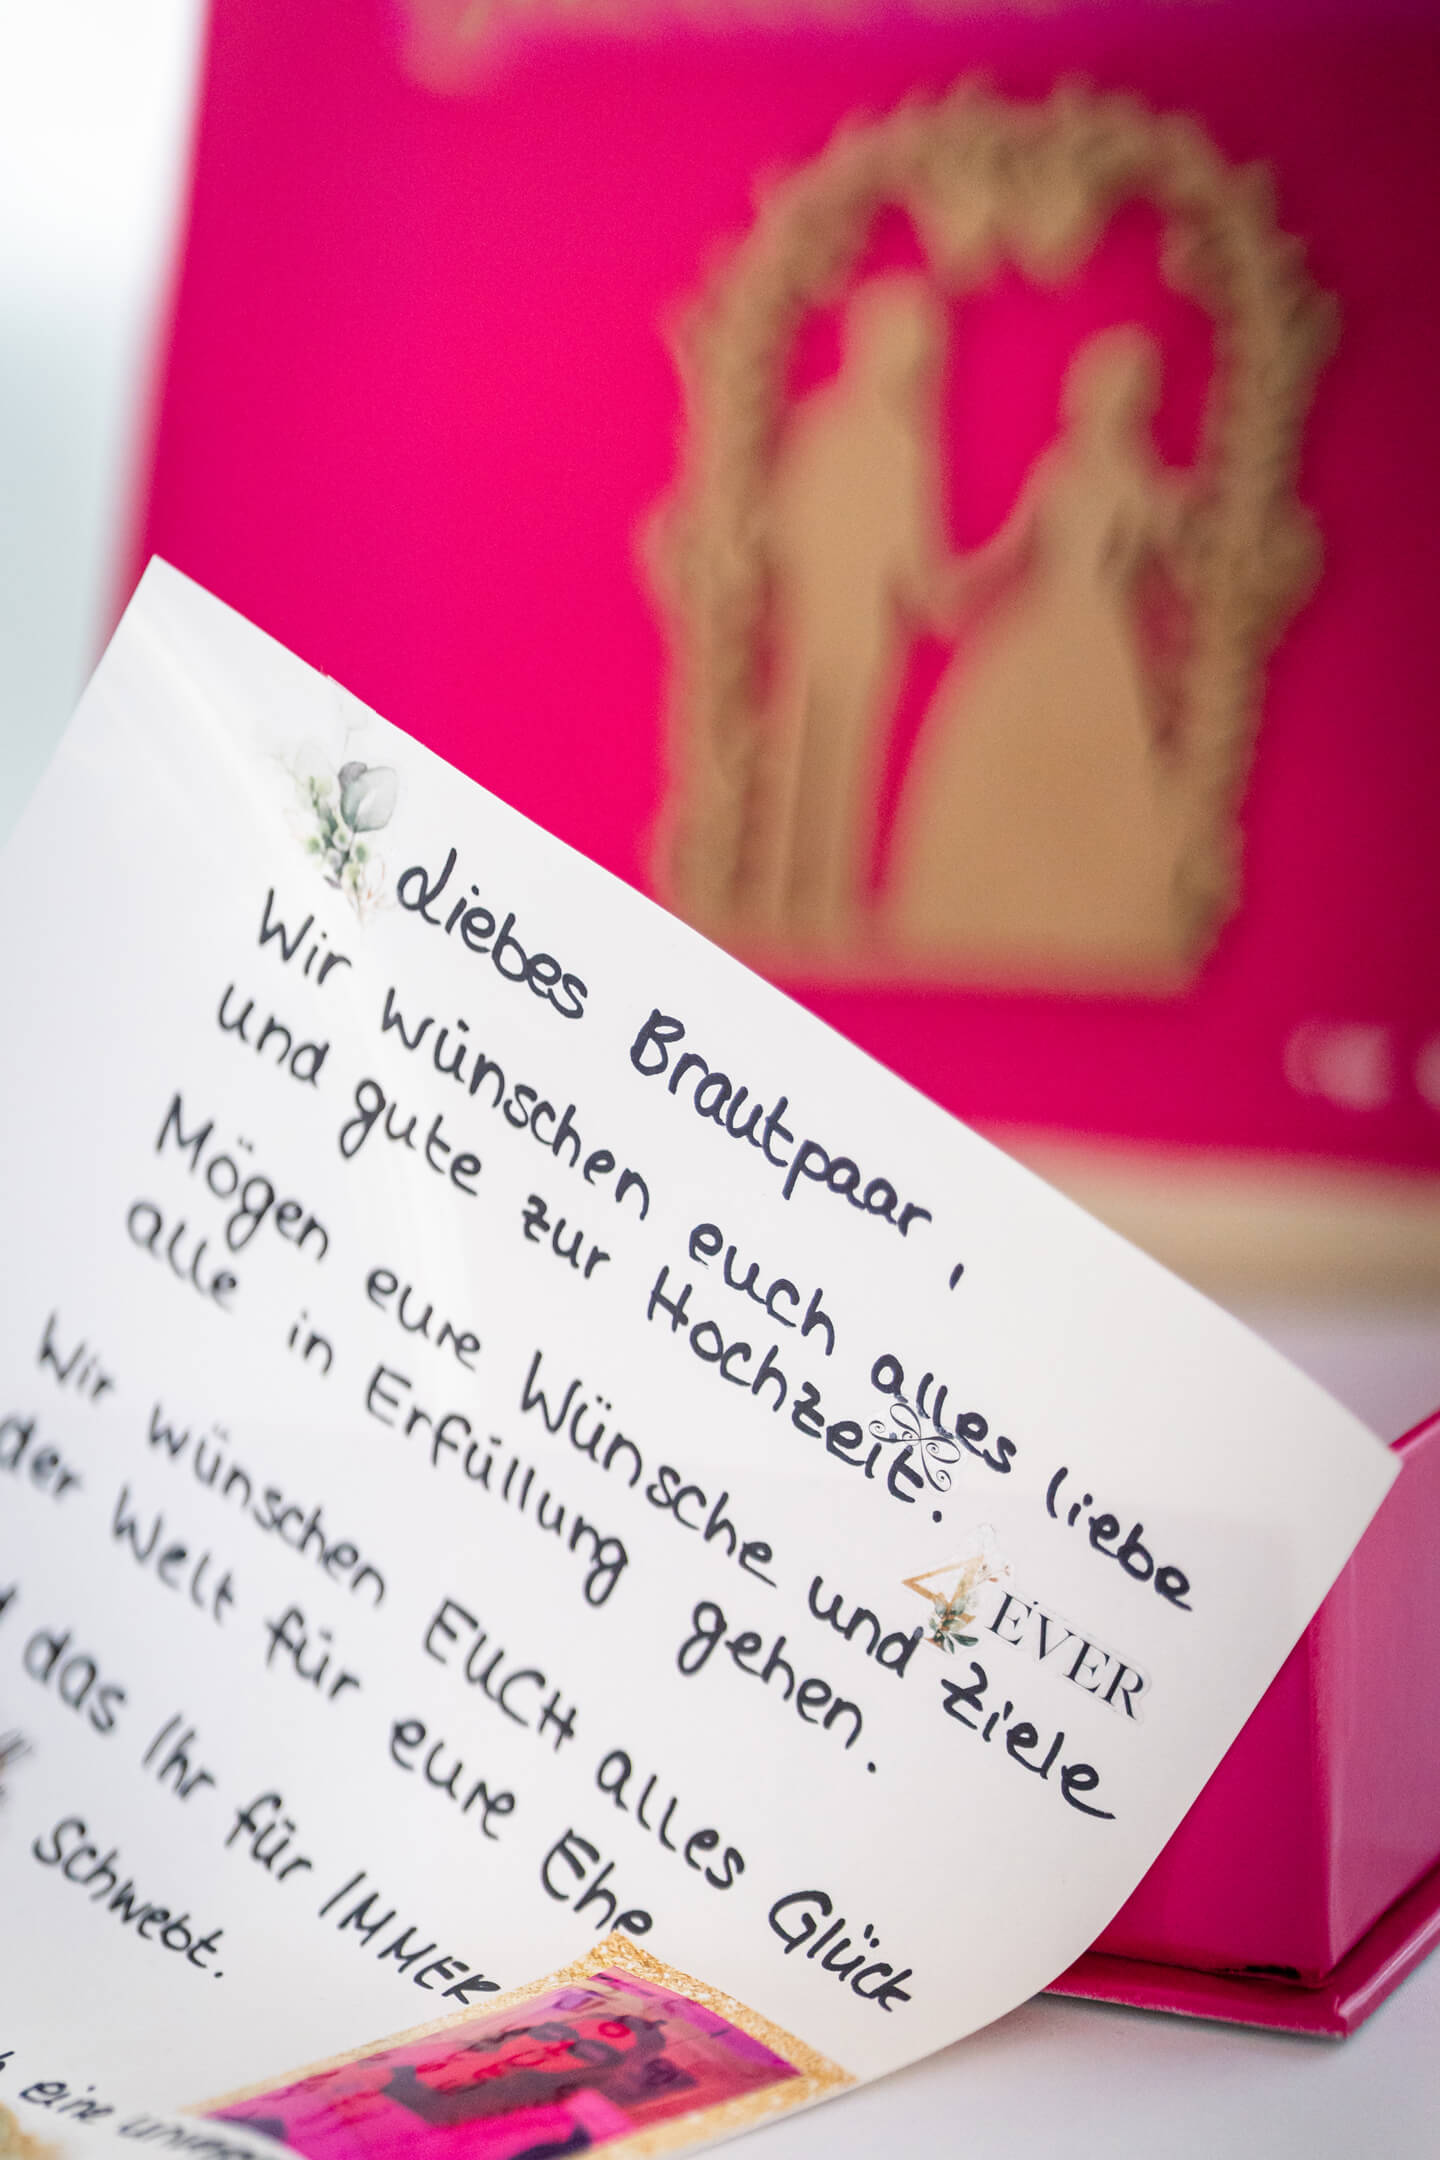 Liebes Brautpaar,
Wir wünschen euch alles liebe
und gute zur Hochzeit.
4 EVER
Mögen eure Wünsche und Ziele
alle in Erfüllung gehen.
Wir wünschen EUCH alles Glück
der Welt für eure Ehe
das Ihr für IMMER
schwebt.
eine